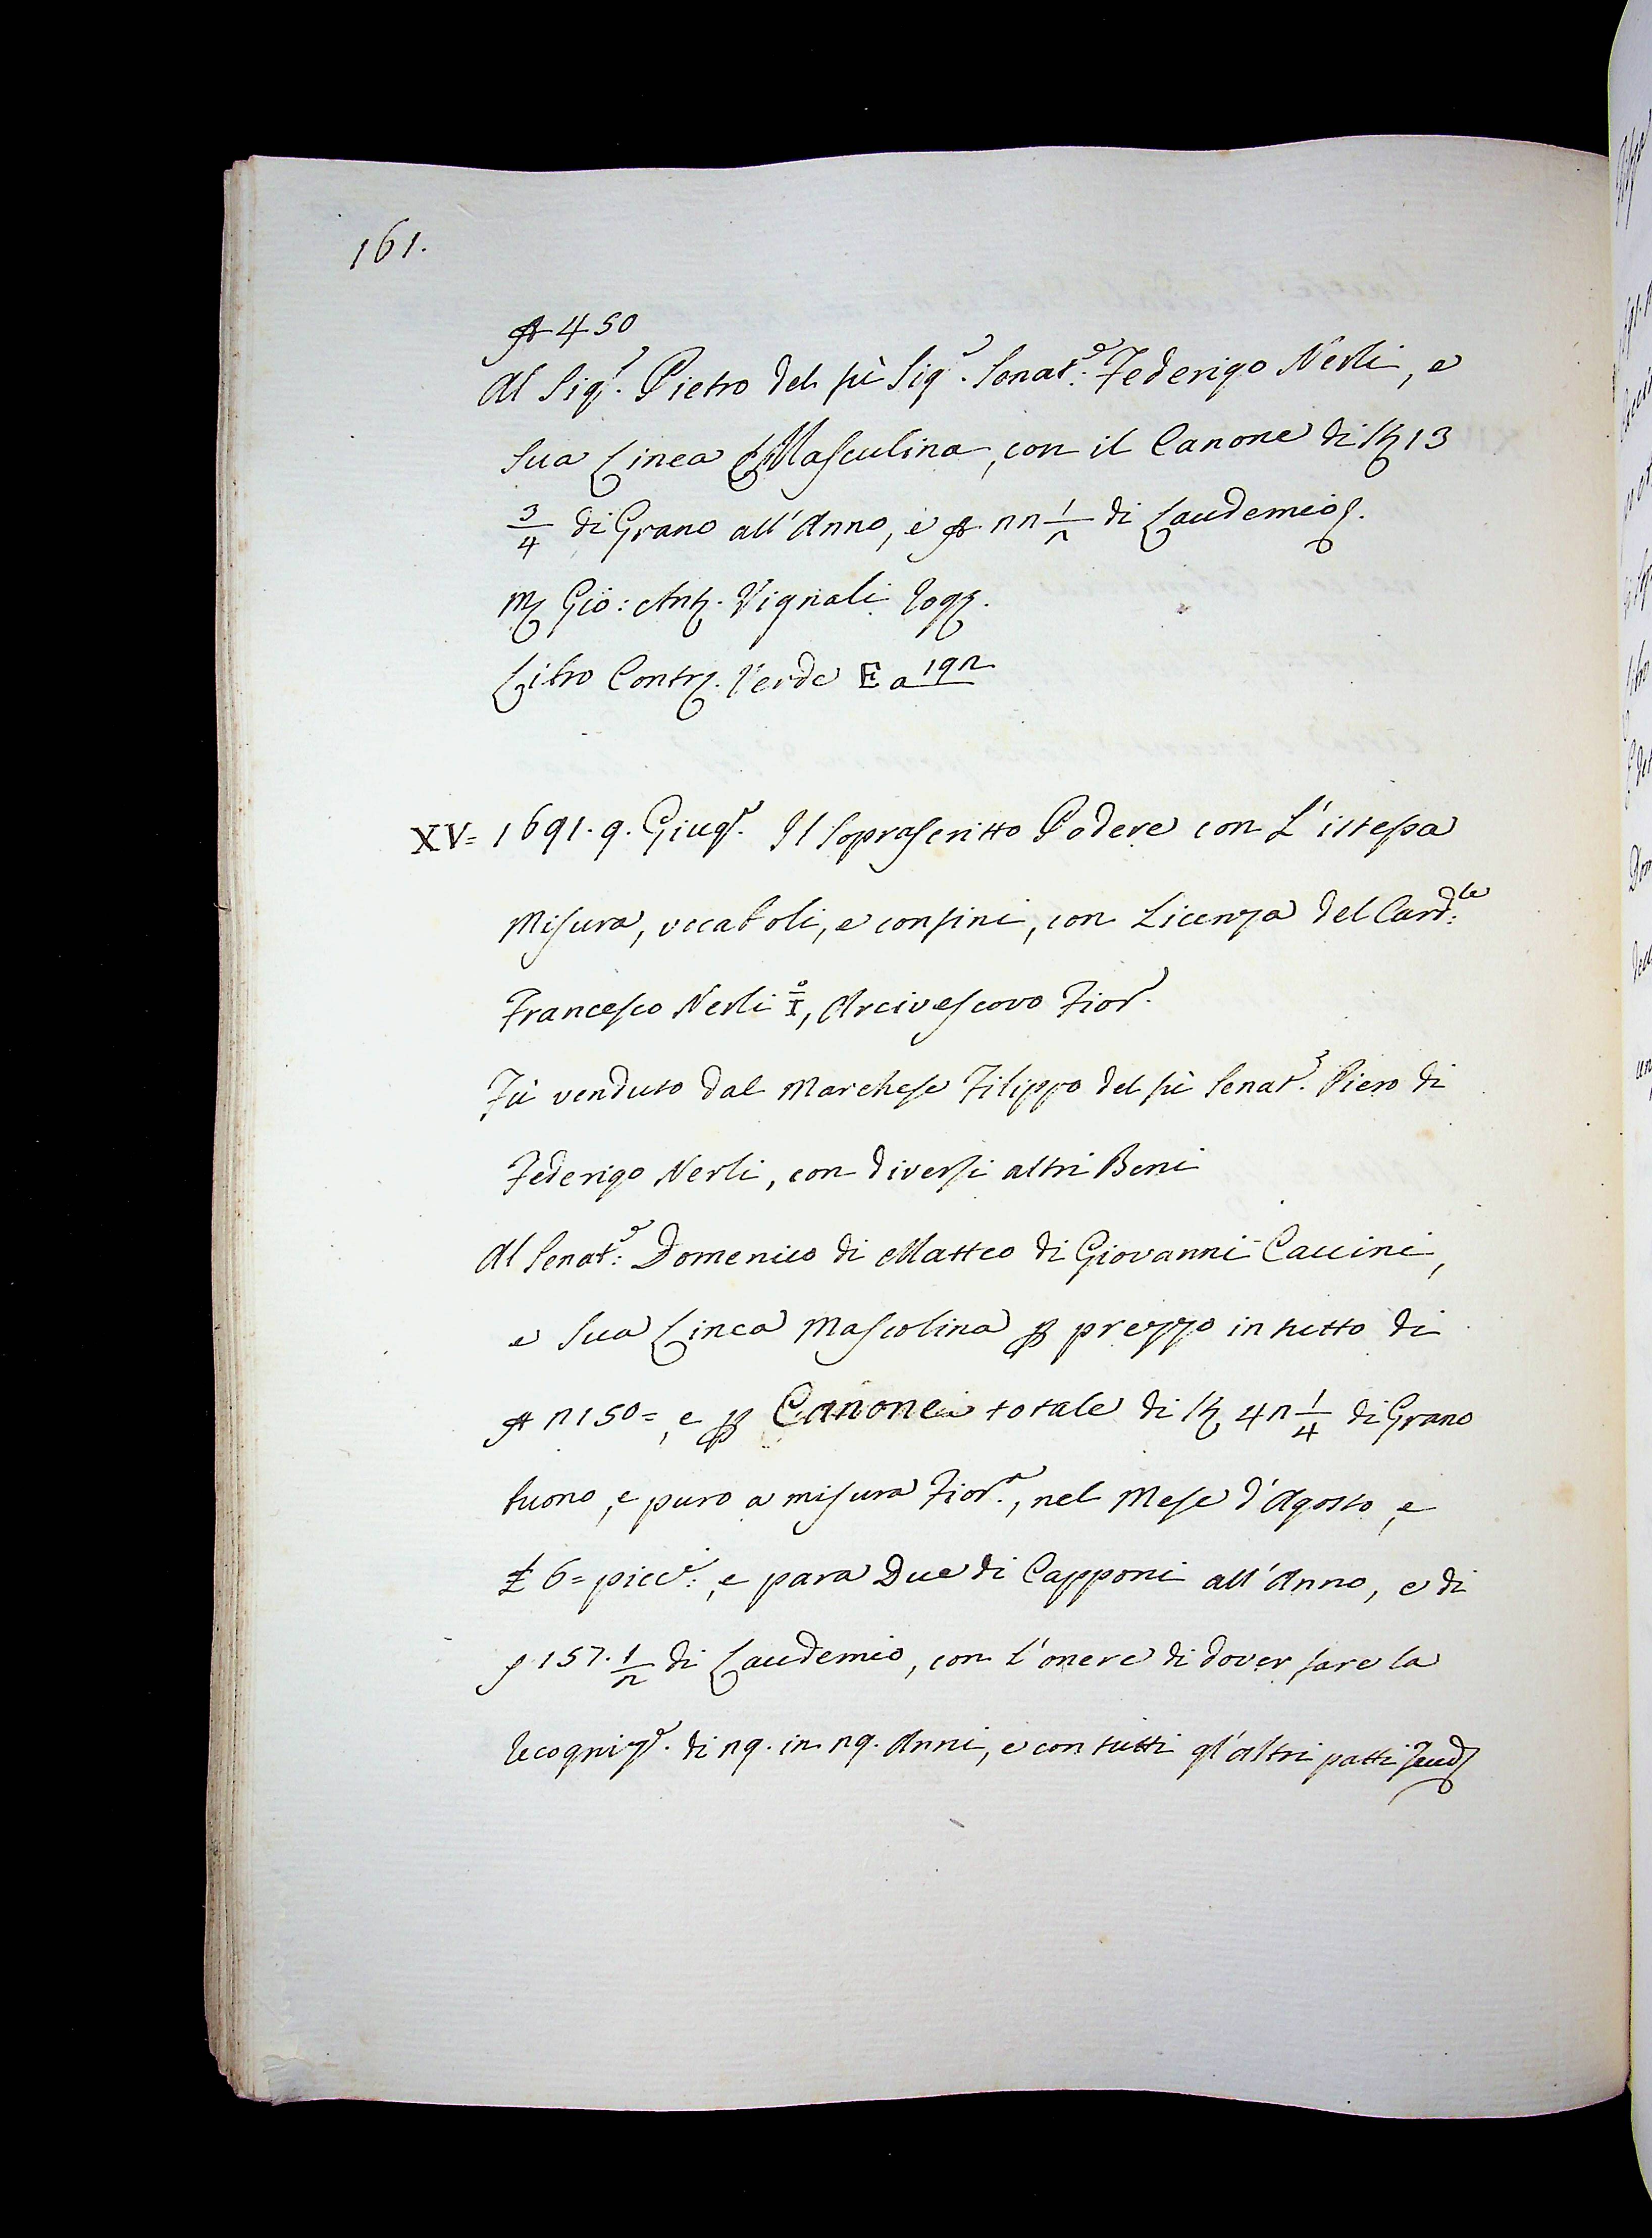 161.
∆ 450
Al Sig.r Pietro del fù Sig.r Senat.e Federigo Nerli, e
sua Linea Masculina, con il Canone di st. 13
3/4 di Grano all'Anno, e ∆ 22 1/2 di Laudemio.
m. Gio: Ant. Vignali Rog.
Libro Contr. Verde E a 192
XV= 1691. 9. Giug.o Il soprascritto Podere con L'istessa
Misura, vocaboli, e confini, con Licenza del Card:le
Francesco Nerli I.o, Arcivescovo Fior.o
Fù venduto dal Marchese Filippo del fù Senat.e Piero di
Federigo Nerli, con diversi altri Beni
Al Senat:e Domenico di Matteo di Giovanni Caccini,
e sua Linea Mascolina p prezzo in tutto di
∆ 2150=, e p Canone totale di st. 42 1/4 di Grano
buono, e puro a misura Fior.a, nel Mese d'Agosto, e
£ 6= picc:i, e para Due di Capponi all'Anno, e di
∫ 157. 1/2 di Laudemio, con l'onere di dover fare la
recogniz.e di 29. in 29. Anni, e con tutti gl'altri patti Feud.